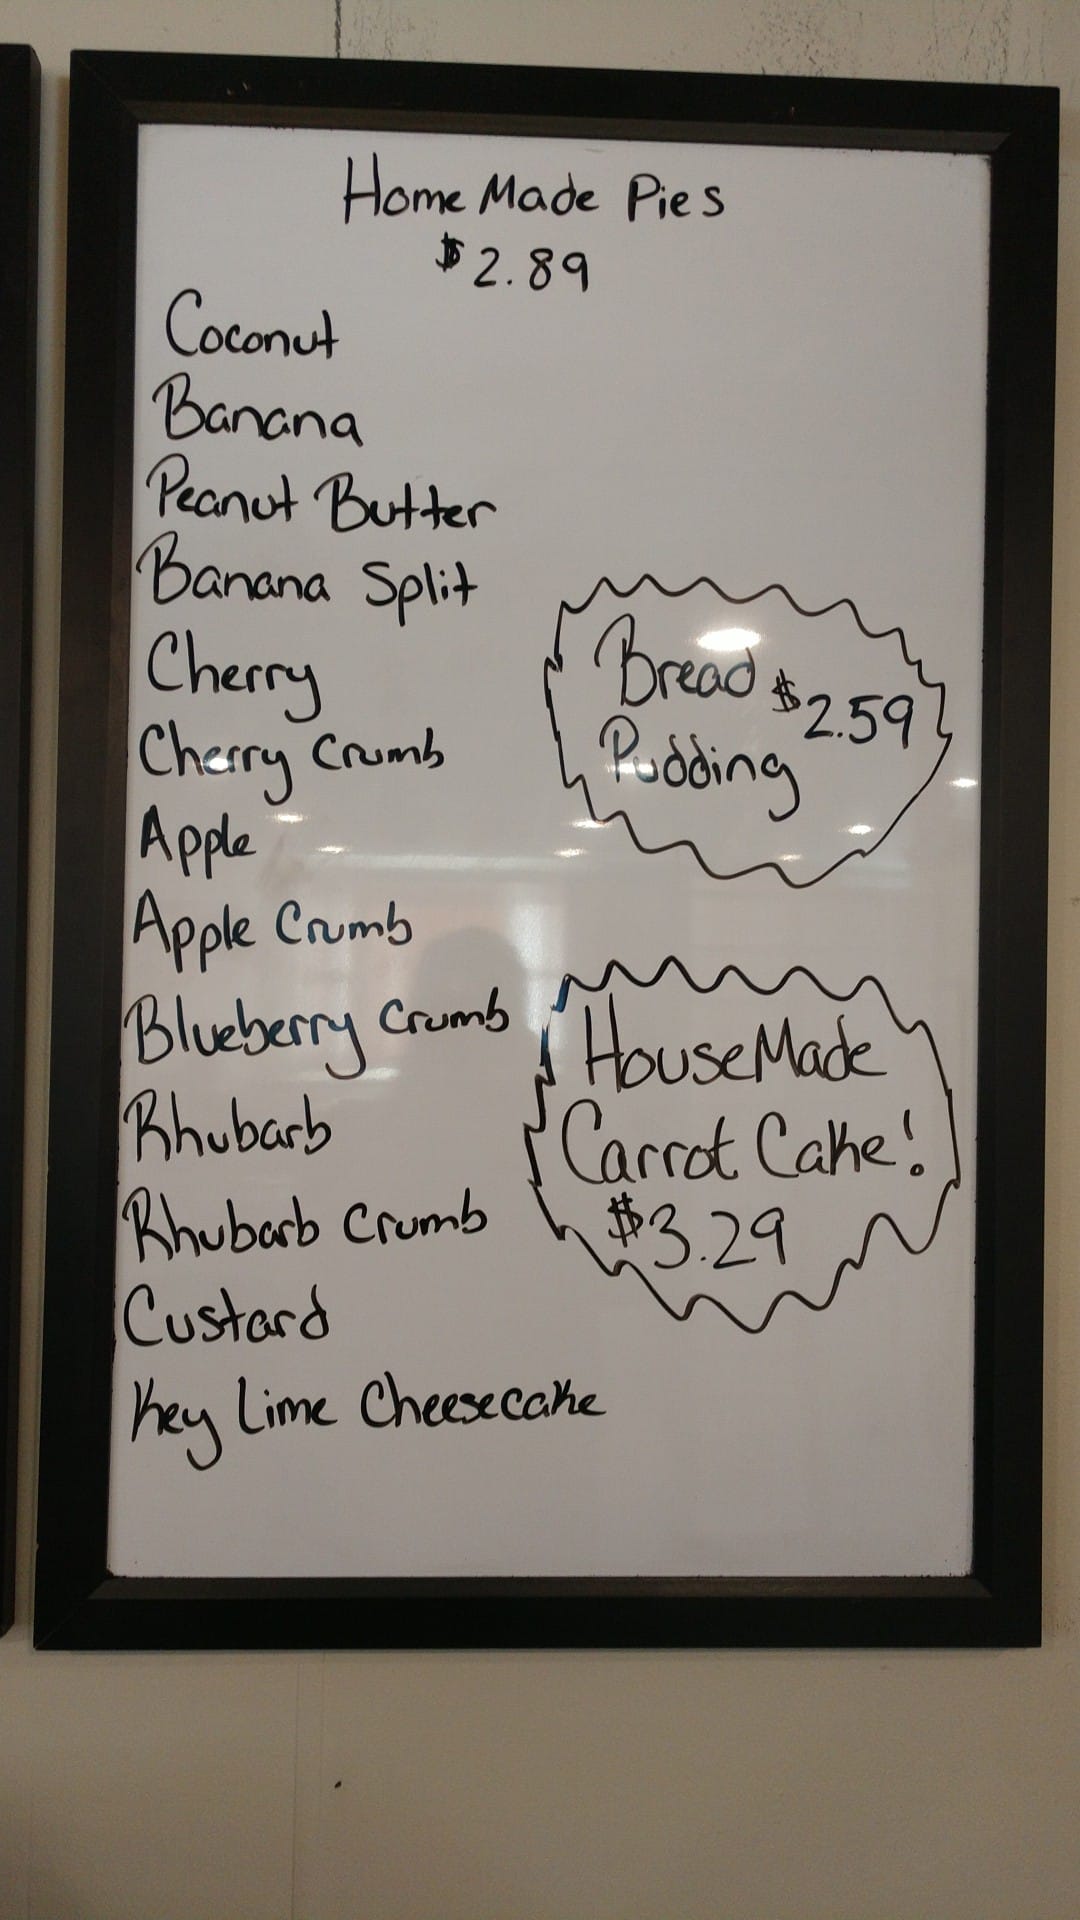 Home Made Pies
$2.89
Coconut
Banana
Peanut Butter
Banana Split
Cherry
Cherry Crumb
Apple
Apple Crumb
Blueberry Crumb
Rhubarb
Rhubarb Crumb
Custard
Key Lime Cheesecake
Bread $2.59
Pudding
HouseMade
Carrot Cake!
$3.29